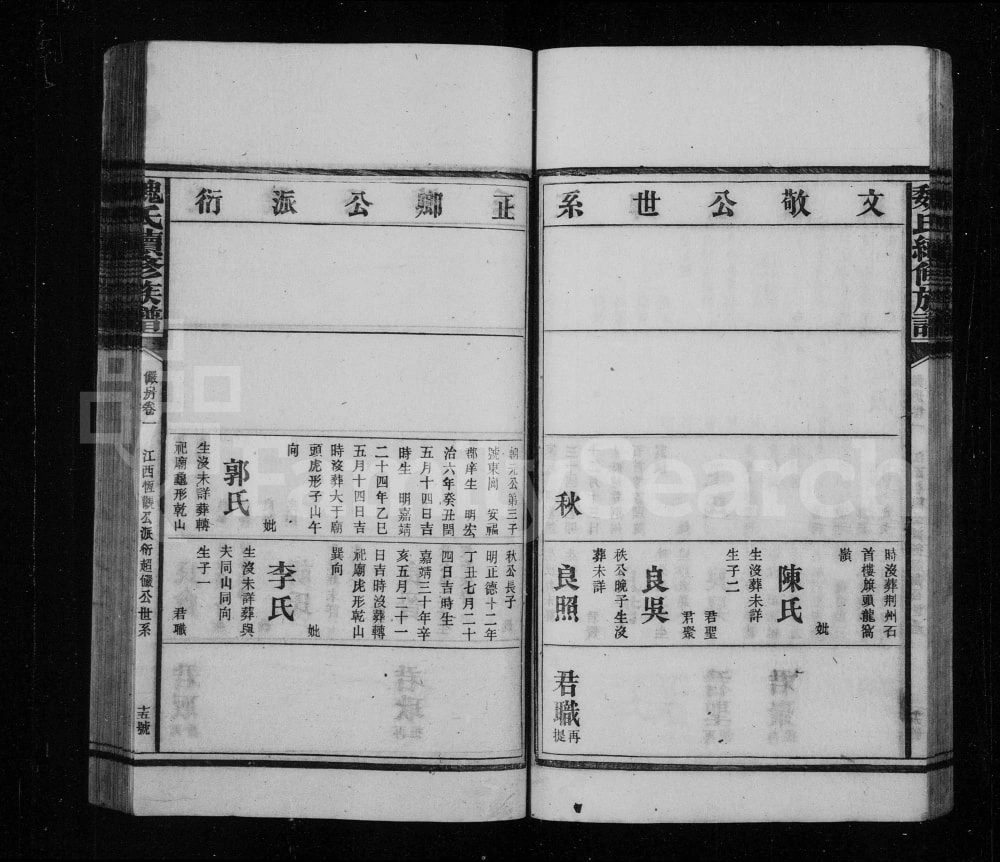 魏氏續修族譜
文敬公世系
時沒葬荆州石
首樓旗頭龍窩
嶺
妣
陳氏
生沒葬未詳
生子二
君聖
君聚
良吳
秩公晚子生沒
葬未詳
秋
良照
君職
再提
正卿公派衍
公第三子
號東岡 安福
郡庠生 明宏
治六年癸丑閏
五月十四日吉
時生 明嘉靖
二十四年乙巳
五月十四日吉
時沒葬大于廟
頭虎形子山午
向
妣
郭氏
生沒未詳葬轉
祀廟龜形乾山
秋公長子
明正德十二年
丁丑七月二十
四日吉時生
嘉靖三十年辛
亥五月二十一
日吉時沒葬轉
祀廟虎形乾山
巽向
妣
李氏
生沒未詳葬與
夫同山同向
生子一
君職
魏氏續修族譜
儼房卷一
江西恆觀公派衍超儼公世系
十五號
FamilySearch